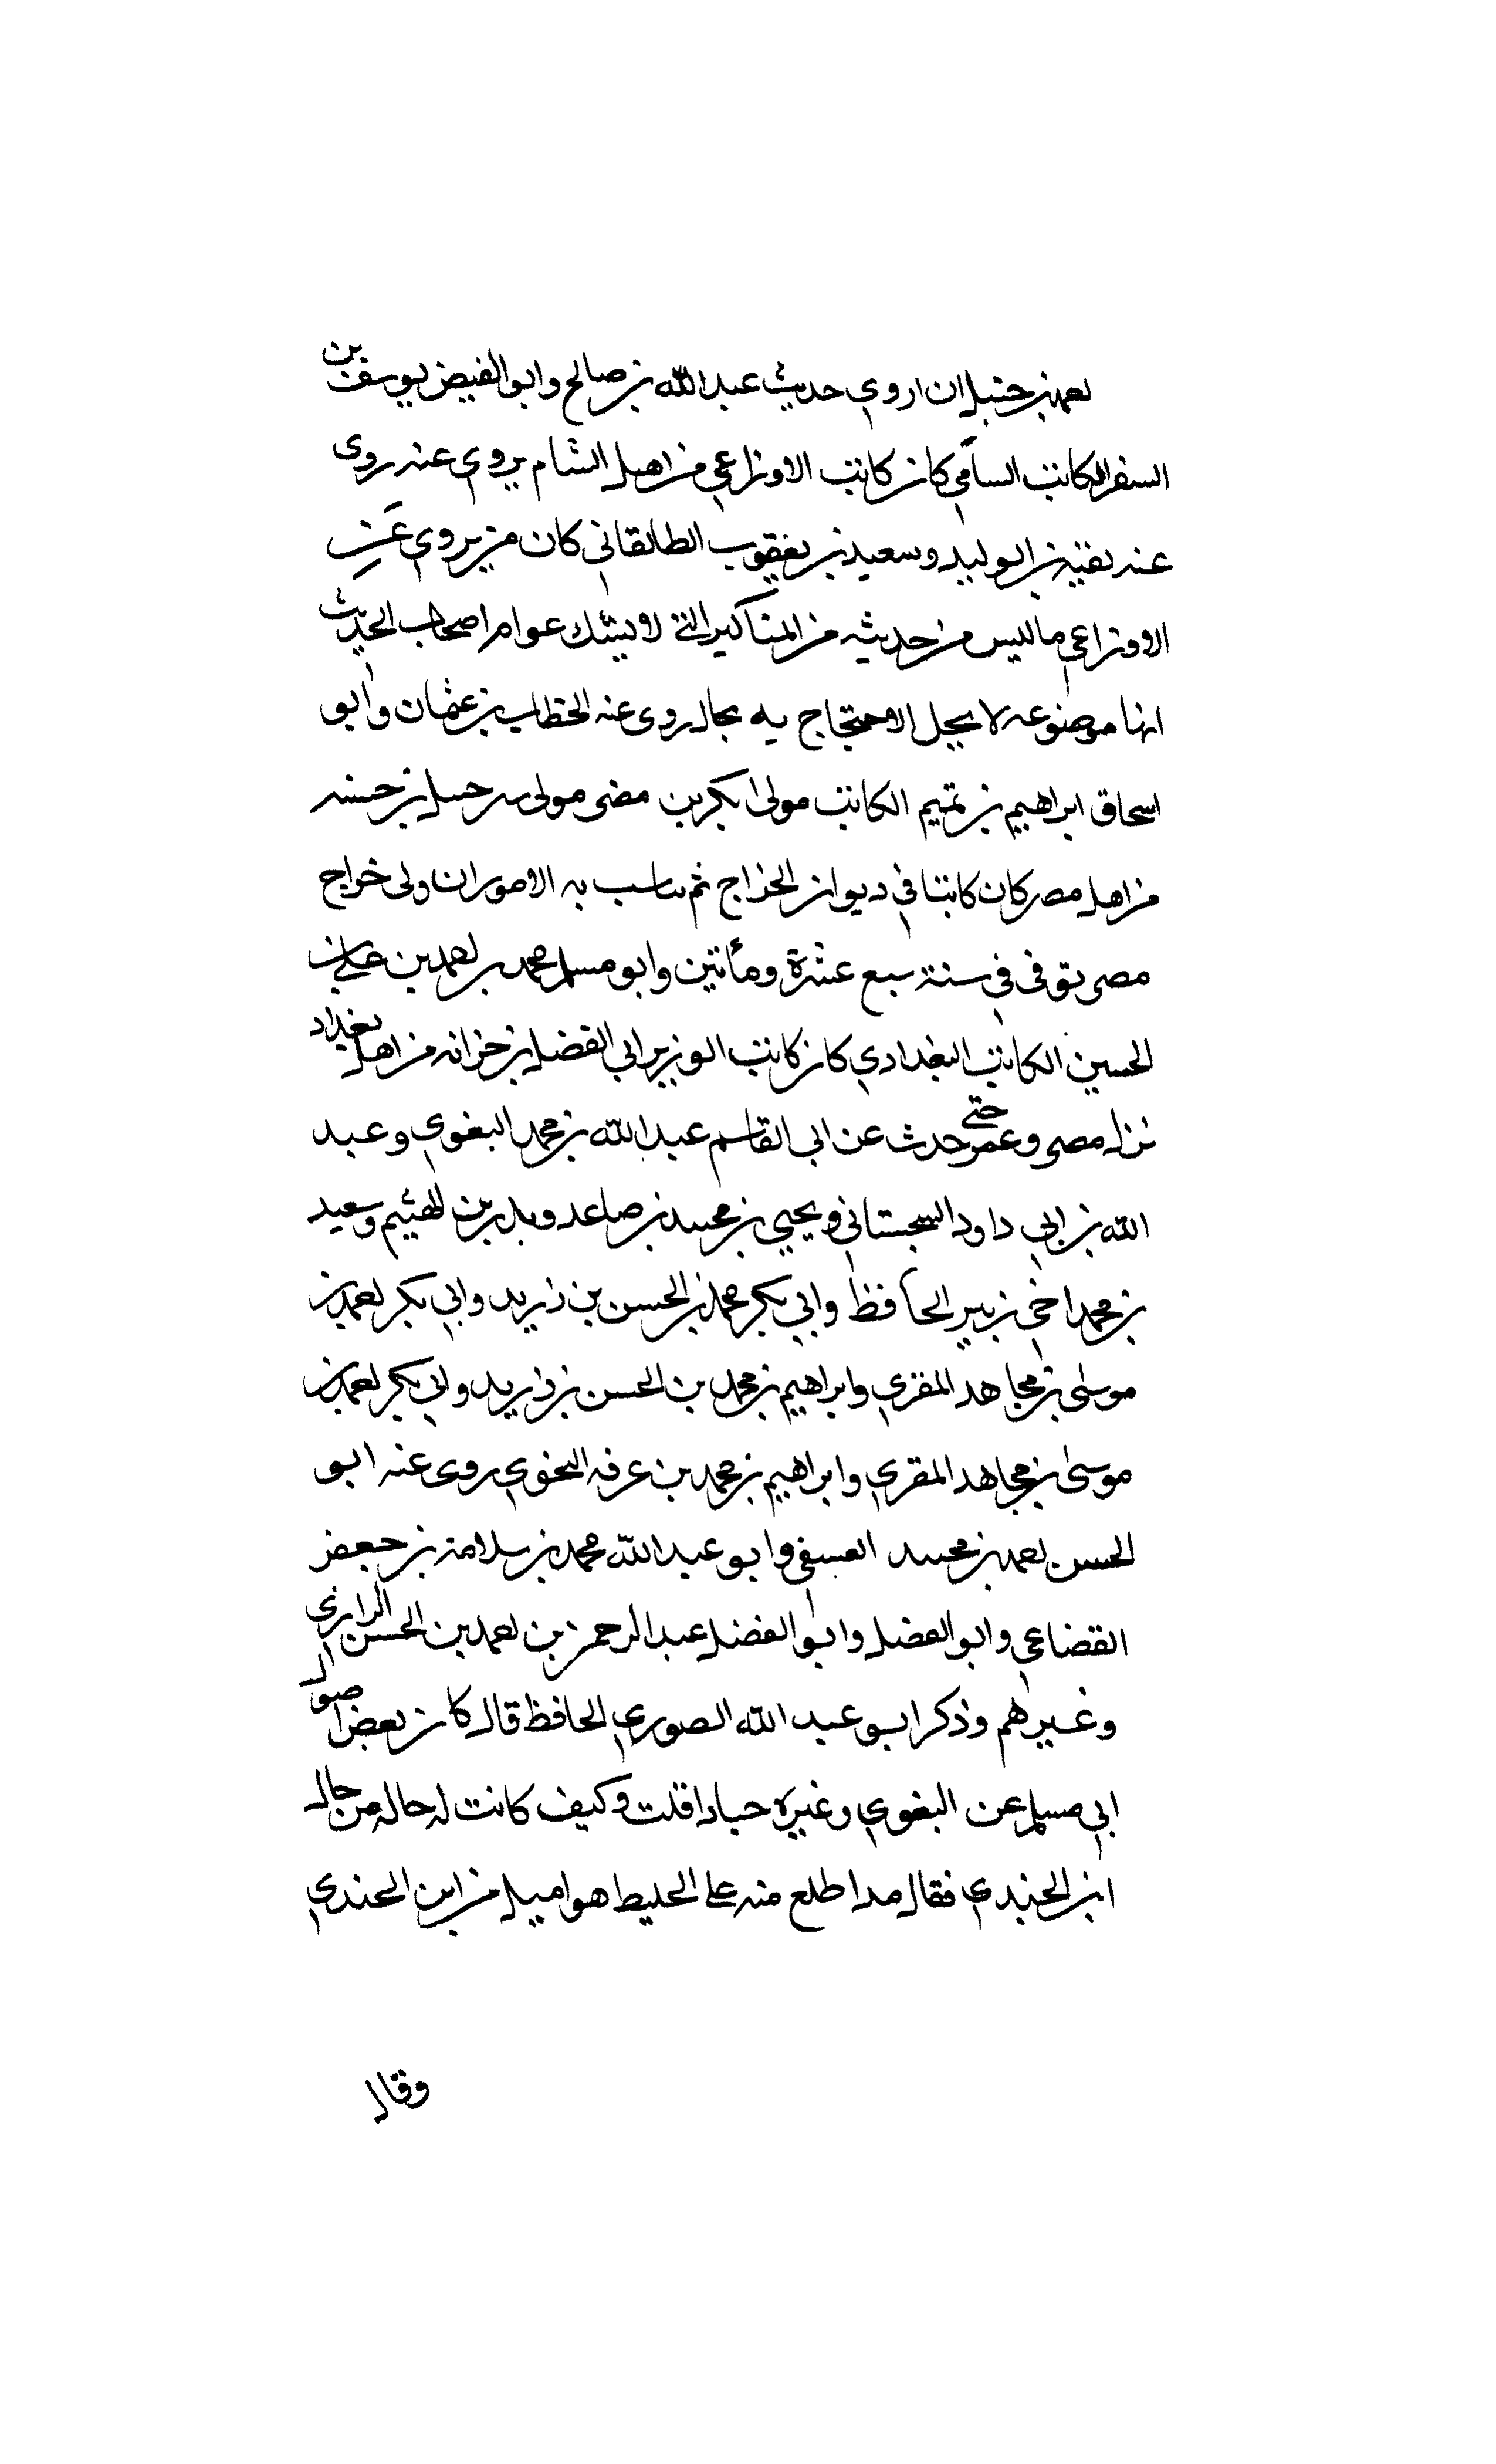 احمد بن حنبل ان اروي حديث عبد الله بن صالح وابو الفيض يوسف بن
السفر الكاتب السامي كان كاتب الاوزاعي من اهل الشام يروي عنه روى
عنه بقية بن الوليد وسعيد بن يعقوب الطالقاني كان من يروي عن
الاوزاعي ما ليس من حديثه من المناكير التي لا يشك عوام اصحاب الحديث
انها موضوعه لا يحل الاحتجاج به بحال روى عنه الخطاب بن عثمان وابو
اسحاق ابراهيم بن تميم الكاتب مولى بكر بن مضى مولى شرحبيل بن حسنه
من اهل مصر كان كاتبا في ديوان الخراج ثم به الامور ان ولى خراج
مصر توفى في سنة سبع عشرة ومأتين وابو مسلم محمد بن احمد بن علي بن
الحسين الكاتب البغدادي كان كاتب الوزير ابي الفضل بن خزانه من اهل بغداد
نزل مصر وعمر حتى حدث عن ابي القاسم عبد الله بن محمد البغوي وعبد
الله بن ابي داود السجستاني ويحيي بن محمد بن صاعد وبدر بن الهيثم وسعيد
بن محمد اخي زبير الحافظ وابي بكر محمد بن الحسن بن ذريد وابي بكر احمد بن
موسى بن مجاهد المقري وابراهيم بن محمد بن الحسن بن ذريد وابي بكر احمد بن
موسى بن مجاهد المقري وابراهيم بن محمد بن عرفه النحوي روى عنه ابو
الحسن احمد بن محمد العسفى وابو عبد الله محمد بن سلامة بن جعفر
القضاعي وابو الفضل وابو الفضل عبد الرحمن بن احمد بن الحسن الرازي
وغيرهم وذكر ابو عبد الله الصوري الحافظ قال كان بعض اصول
ابي مسلم عن البغوي وغيره جيادا قلت وكيف كانت له حاله من حال
ابن الجندي فقال مدا طلع منه على الخليط هو اميل من ابن الجندي
وقال